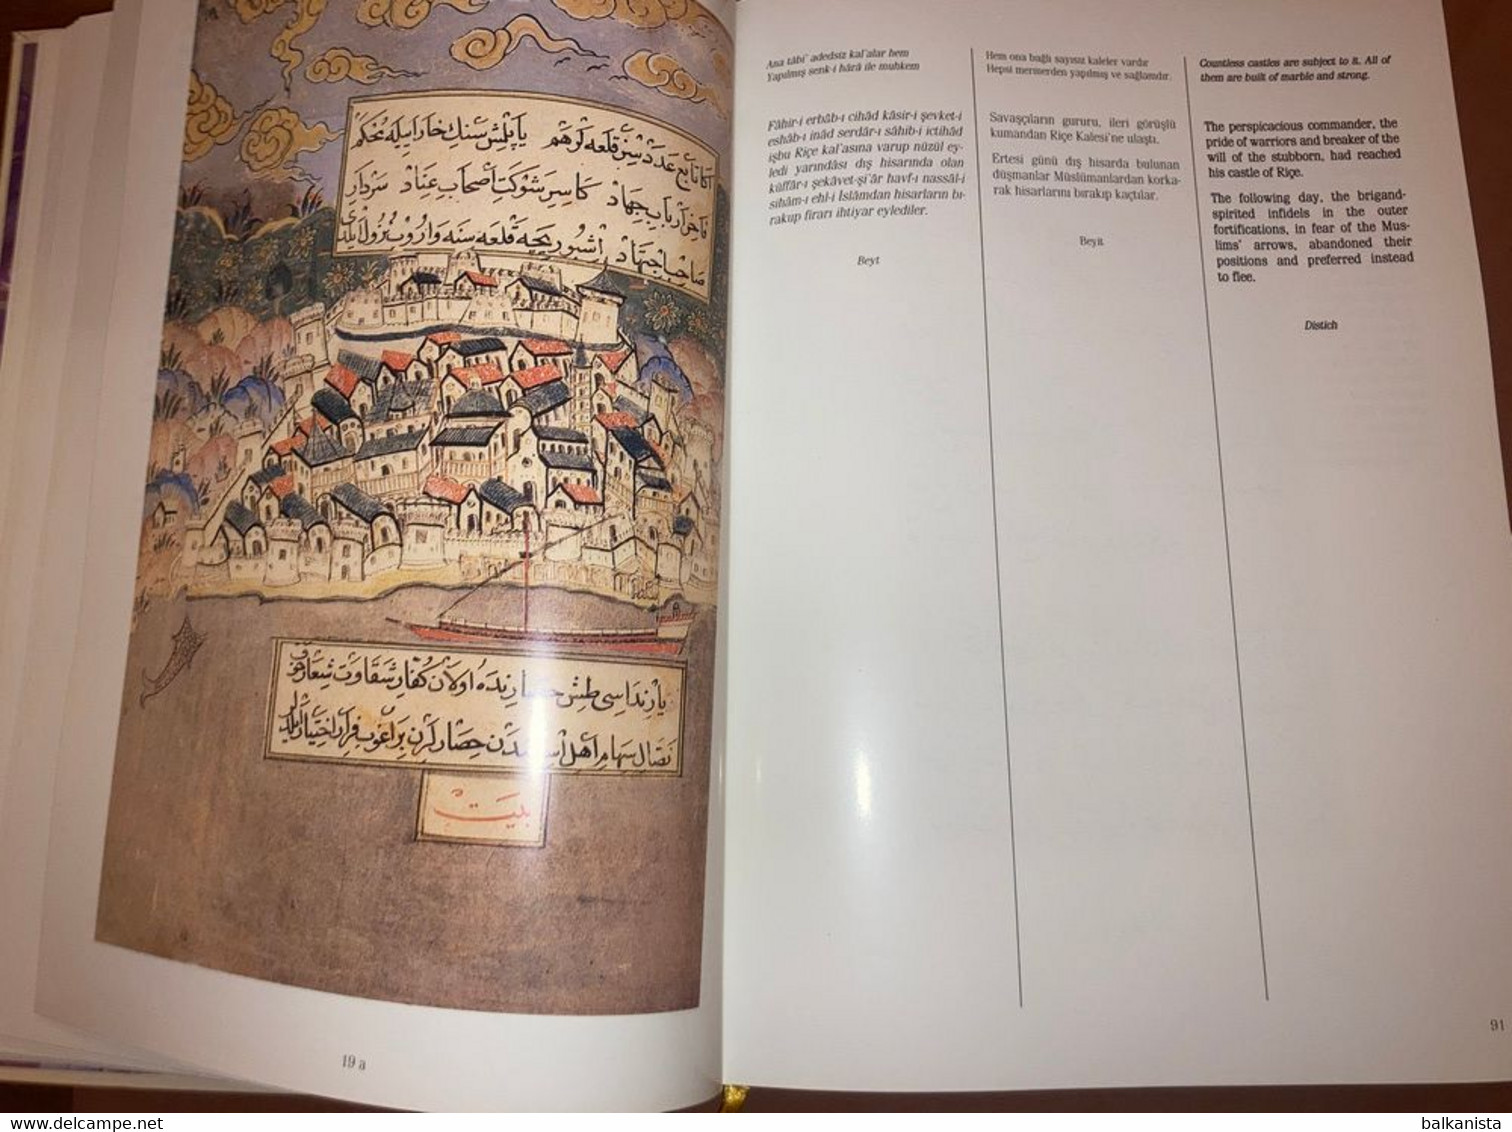 اكا تابع عدد سز قلعه لر هم    ياپلمش سنك خارا ايله محكم
فاخر ارباب جهاد كاسر شوكت أصحاب عناد سردار
صاحب اجتهاد اشبو ريچه قلعه سنه واروب نزول ايلدى
يارنداسى طش حصارنده اولان كفار شقاوت شعار خوف
نصال سهام أهل حصارلرن براغوب فرار اختيار ايلديلر
بيت
19 a
Ana tâbi' adedsiz kal'alar hem
Yapılmış senk-i hârâ ile muhkem
Fâhir-i erbâb-ı cihâd kâsir-i şevket-i
eshâb-ı inâd serdâr-ı sâhib-i ictihâd
işbu Riçe kal'asına varup nüzûl ey-
ledi yarındâsı dış hisarında olan
küffâr-ı şekâvet-şi'âr havf-ı nassâl-i
sihâm-ı ehl-i İslâmdan hisarların bı-
rakup firarı ihtiyar eylediler.
Beyt
Hem ona bağlı sayısız kaleler vardır
Hepsi mermerden yapılmış ve sağlamdır.
Savaşçıların gururu, ileri görüşlü
kumandan Riçe Kalesi'ne ulaştı.
Ertesi günü dış hisarda bulunan
düşmanlar Müslümanlardan korka-
rak hisarlarını bırakıp kaçtılar.
Beyit
Countless castles are subject to it. All of
them are built of marble and strong.
The perspicacious commander, the
pride of warriors and breaker of the
will of the stubborn, had reached
his castle of Riçe.
The following day, the brigand-
spirited infidels in the outer
fortifications, in fear of the Mus-
lims' arrows, abandoned their
positions and preferred instead
to flee.
Distich
91
delcampe.net
balkanista